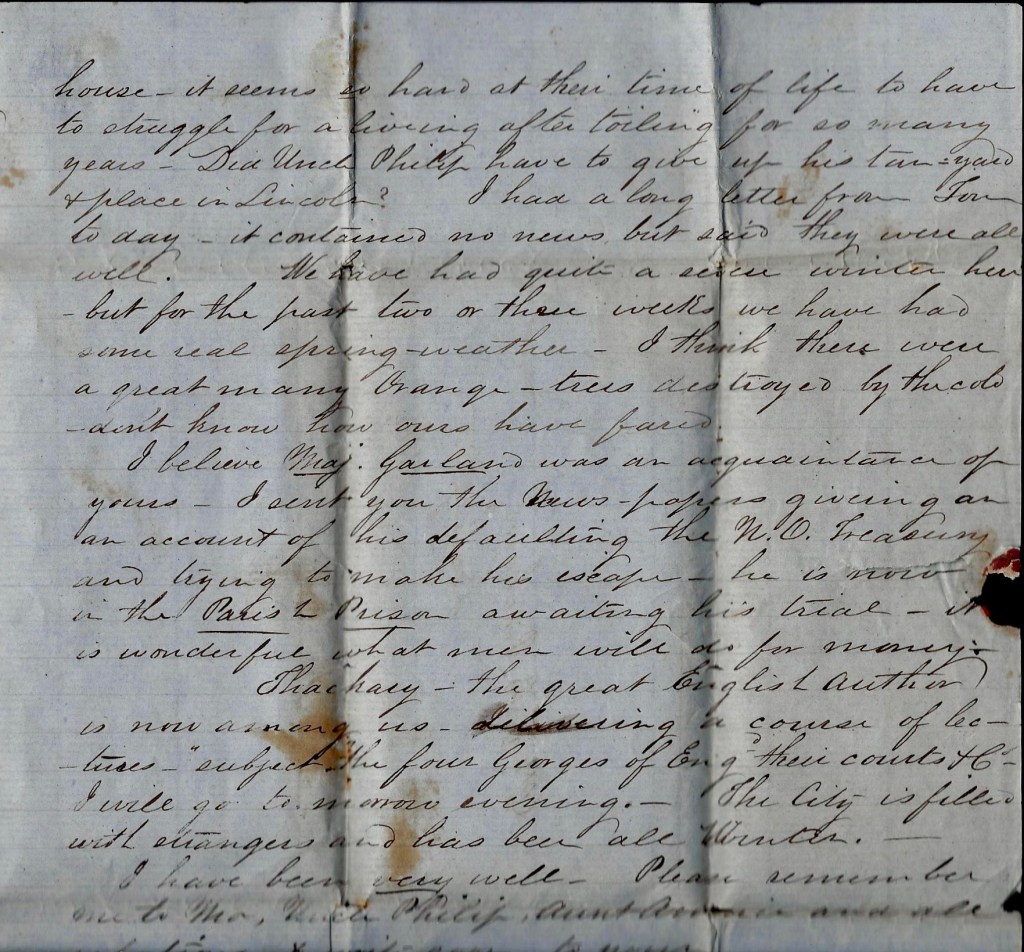 house - it seems so hard at their time of life to have
to struggle for a living after toiling for so many
years - Did Uncle Philip have to give up his tan=yard
& place in Lincoln? I had a long letter from Tom
to day - it contained no news but said they were all
well. We have had quite a severe winter here
- but for the past two or three weeks we have had
some real spring-weather - I think there were
a great many Orange-trees destroyed by the cold
- don't know how ours have fared.
I believe Maj. Garland was an acquaintance of
yours - I sent you the News-papers giving an
an account of his defaulting the N.O. Treasury
and trying to make his escape - he is now
in the Parish Prison awaiting his trial - it
is wonderful what men will do for money -
Thackary - the great English Author
is now among us - delivering a course of lec-
-tures - "subject - the four Georges of Eng^d" their courts &C -
I will go to-morrow evening. - The City is filled
with strangers and has been all Winter. -
I have been very well - Please remember
me to Ma, Uncle Philip, Aunt and all